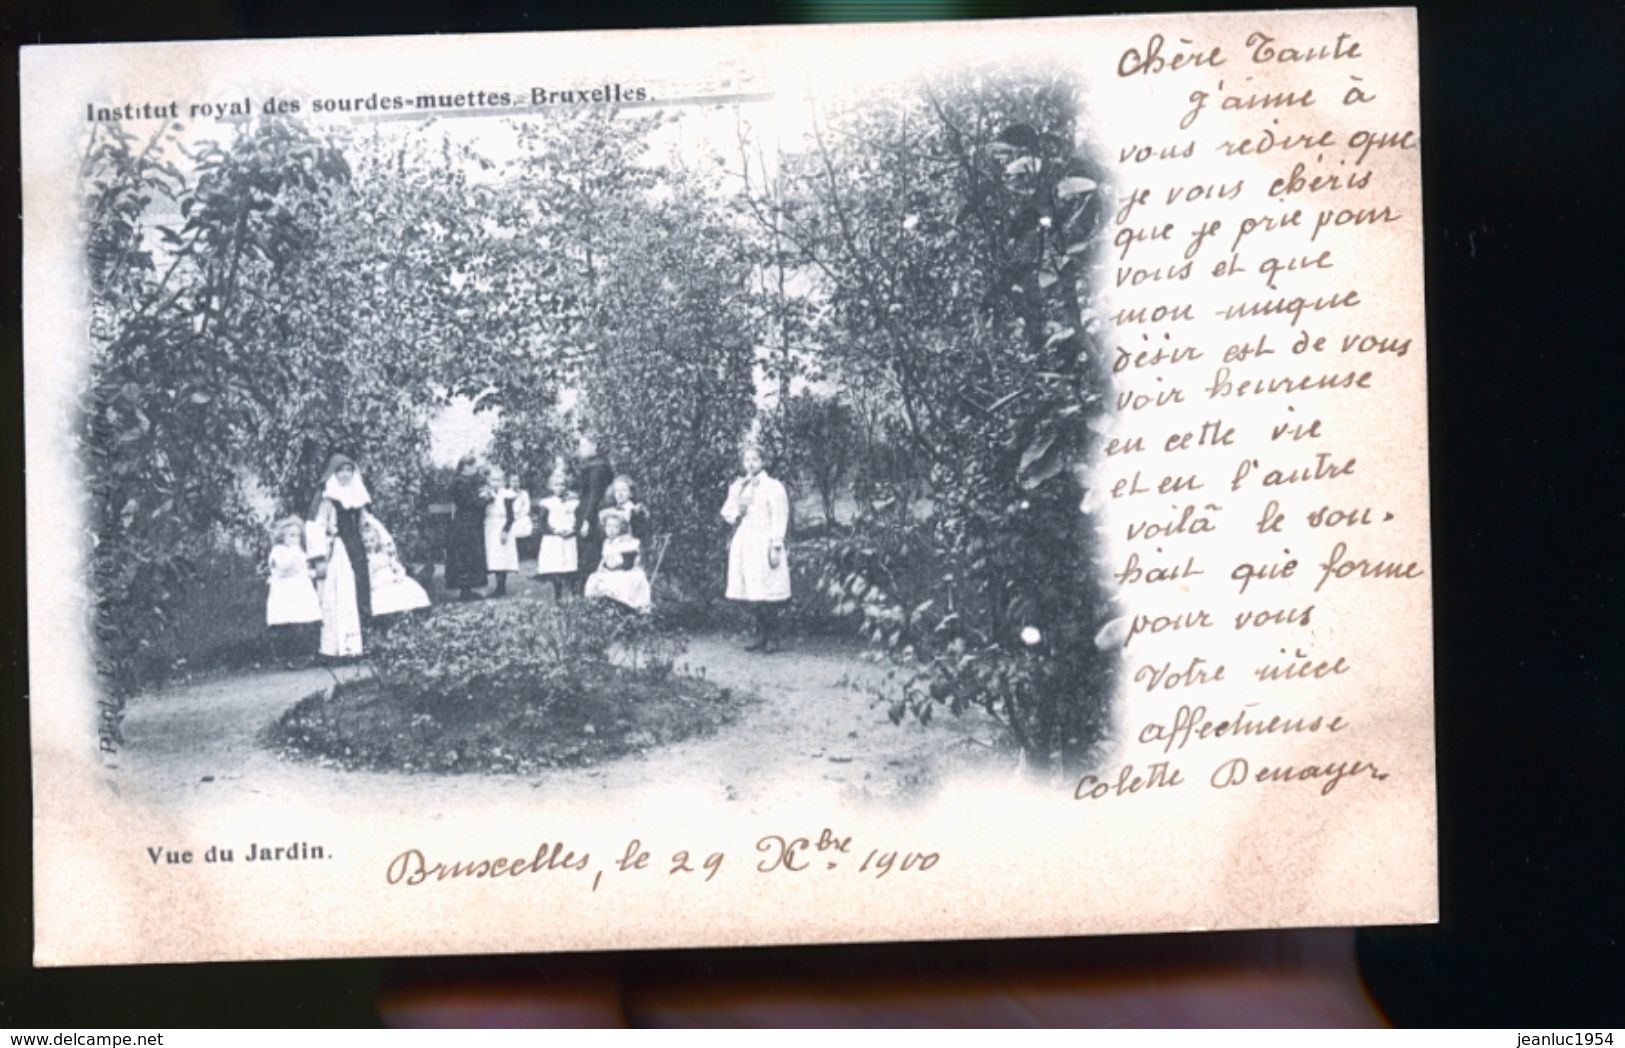 Institut royal des sourdes-muettes, Bruxelles.
Chère Tante
J'aime à
vous redire que
je vous chéris
que je prie pour
vous et que
mon unique
désir est de vous
voir heureuse
en cette vie
et en l'autre
voilà le sou-
hait que forme
pour vous
Votre nièce
affectueuse
Colette Denayer
Vue du Jardin.
Bruxelles, le 29 Xbre 1900
delcampe.net
jeanluc1954